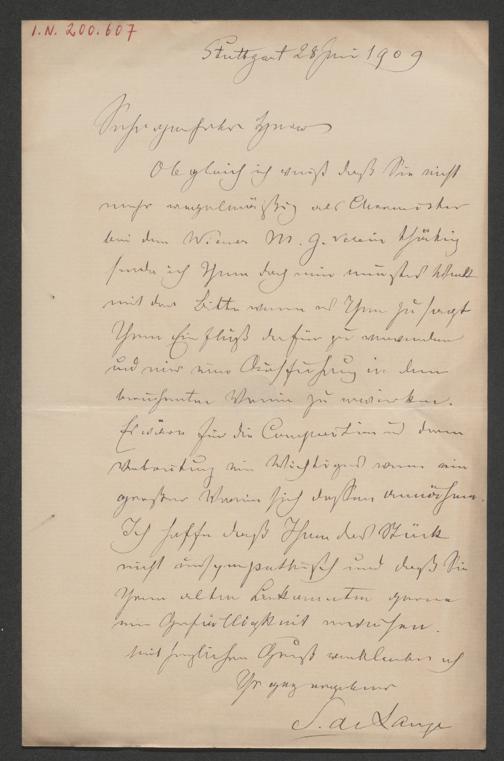 I.N. 200.607
Stuttgart 28 Juni 1909
Sehr geehrter Herr
Obgleich ich weiß daß Sie nicht
mehr regelmäßig als Chormeister
bei dem Wiener M. G. Verein thätig
sende ich Ihnen doch mein neustes Werk
mit der Bitte wenn es Ihnen zu sagt
Ihren Einfluß dafür zu verwenden
und mir eine Aufführung in dem
berühmten Verein zu erwirken.
Es wäre für die Composition und deren
Verbreitung ein Wichtiges wenn ein
großer Verein sich dessen annähme.
Ich hoffe daß Ihnen das Stück
nicht unsympathisch und daß Sie
Ihrem alten Bekannten gerne
eine Gefälligkeit erweisen.
Mit herzlichem Gruß verbleibe ich
Ihr ganz ergebener
S. de Lange